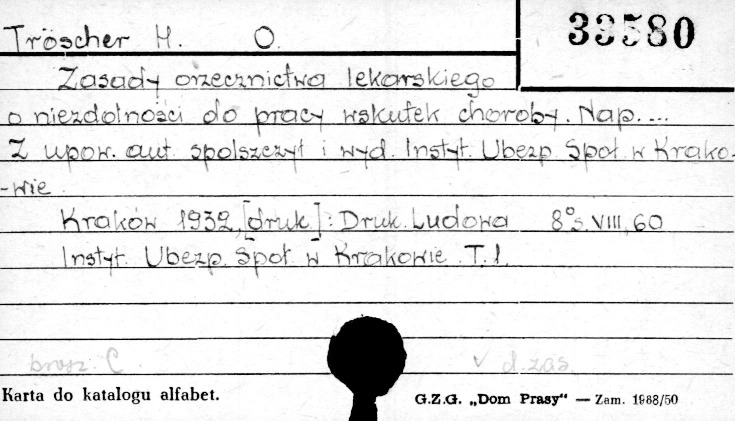 Tröscher H. O.
33580
Zasady orzecznictwa lekarskiego
o niezdolności do pracy wskutek choroby. Nap. ...
Z upow. aut. spolszczył i wyd. Instyt. Ubezp. Społ. w Krako-
-wie.
Kraków 1932, [druk]: Druk. Ludowa 8° s. VIII, 60
Instyt. Ubezp. Społ. w Krakowie. T. 1.
brosz. C. v d. zas.
Karta do katalogu alfabet.
G.Z.G. „Dom Prasy" — Zam. 1988/50